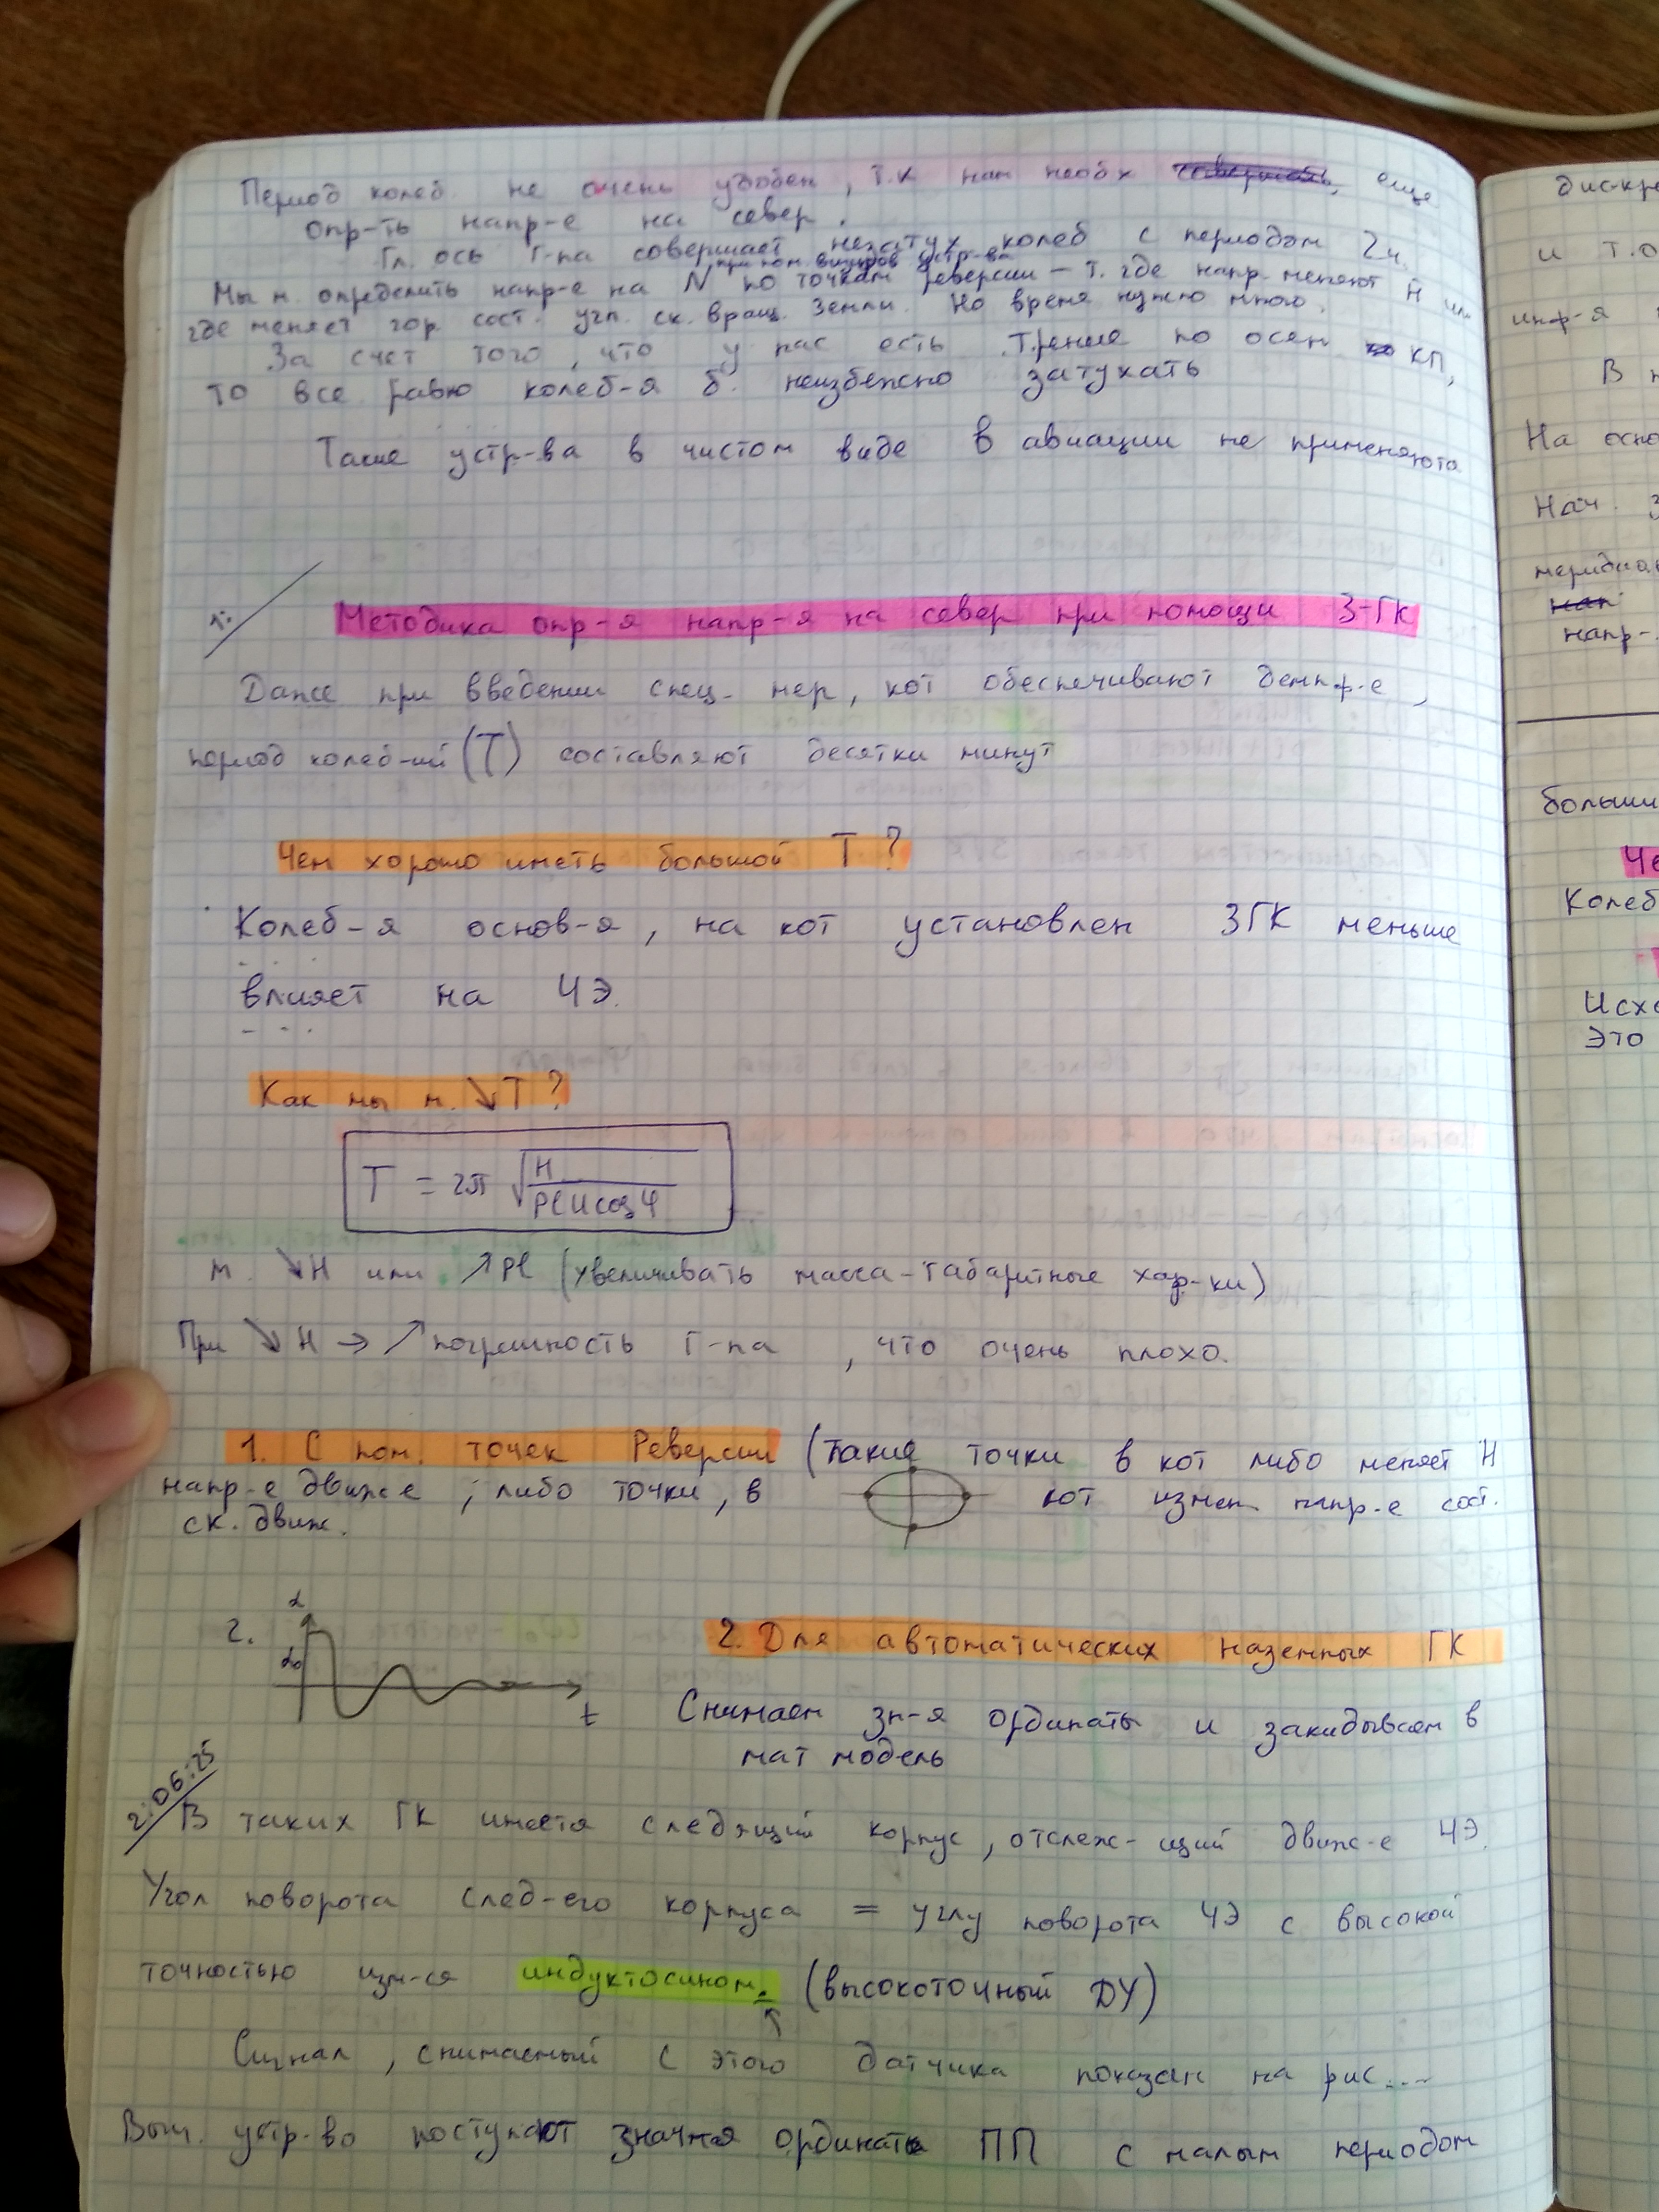 Период колеб. не очень удобен, т.к нам необх еще
опр-ть напр-е на север.
Гл. ось Г-па совершает незатух колеб с периодом 2ч.
при пом. визиров устр-ва
Мы м. определить напр-е на N по точкам реверсии – т. где напр. меняют H или
где меняет гор. сост. угл. ск. вращ. Земли. Но время нужно много.
За счет того, что у нас есть трение по осям КП,
то все равно колеб-я б. неизбежно затухать
Такие устр-ва в чистом виде в авиации не применяются
Методика опр-я напр-я на север при помощи 3-ГК
Даже при введении спец. мер, кот обеспечивают демпф-е,
период колеб-ий (T) составляют десятки минут
Чем хорошо иметь большой T?
Колеб-я основ-я, на кот установлен 3ГК меньше
влияет на ЧЭ.
Как мы м. ↘T?
T = 2π √(H / PlUcosφ)
м. ↘H или ↗Pl (увеличивать масса-габаритные хар-ки)
При ↘H → ↗погрешность Г-па, что очень плохо.
1. С пом. точек Реверсии (такие точки в кот либо меняет H
напр-е движ-е; либо точки, в кот измен. напр-е сост.
ск. движ.
2.
α
α₀
t
2. Для автоматических наземных ГК
Снимаем зн-я ординаты и закидываем в
мат модель
2:06:25
В таких ГК имеется следящий корпус, отслеж-щий движ-е ЧЭ.
Угол поворота след-его корпуса = углу поворота ЧЭ с высокой
точностью изм-ся индуктосином. (высокоточный ДУ)
Сигнал, снимаемый с этого датчика показан на рис....
Выч. устр-во поступают значия ординаты ПП с малым периодом
дискре
и т.о
инф-я
В
На осно
Нач. з
меридиа
напр-
больши
Че
Колеб
Исхо
Это